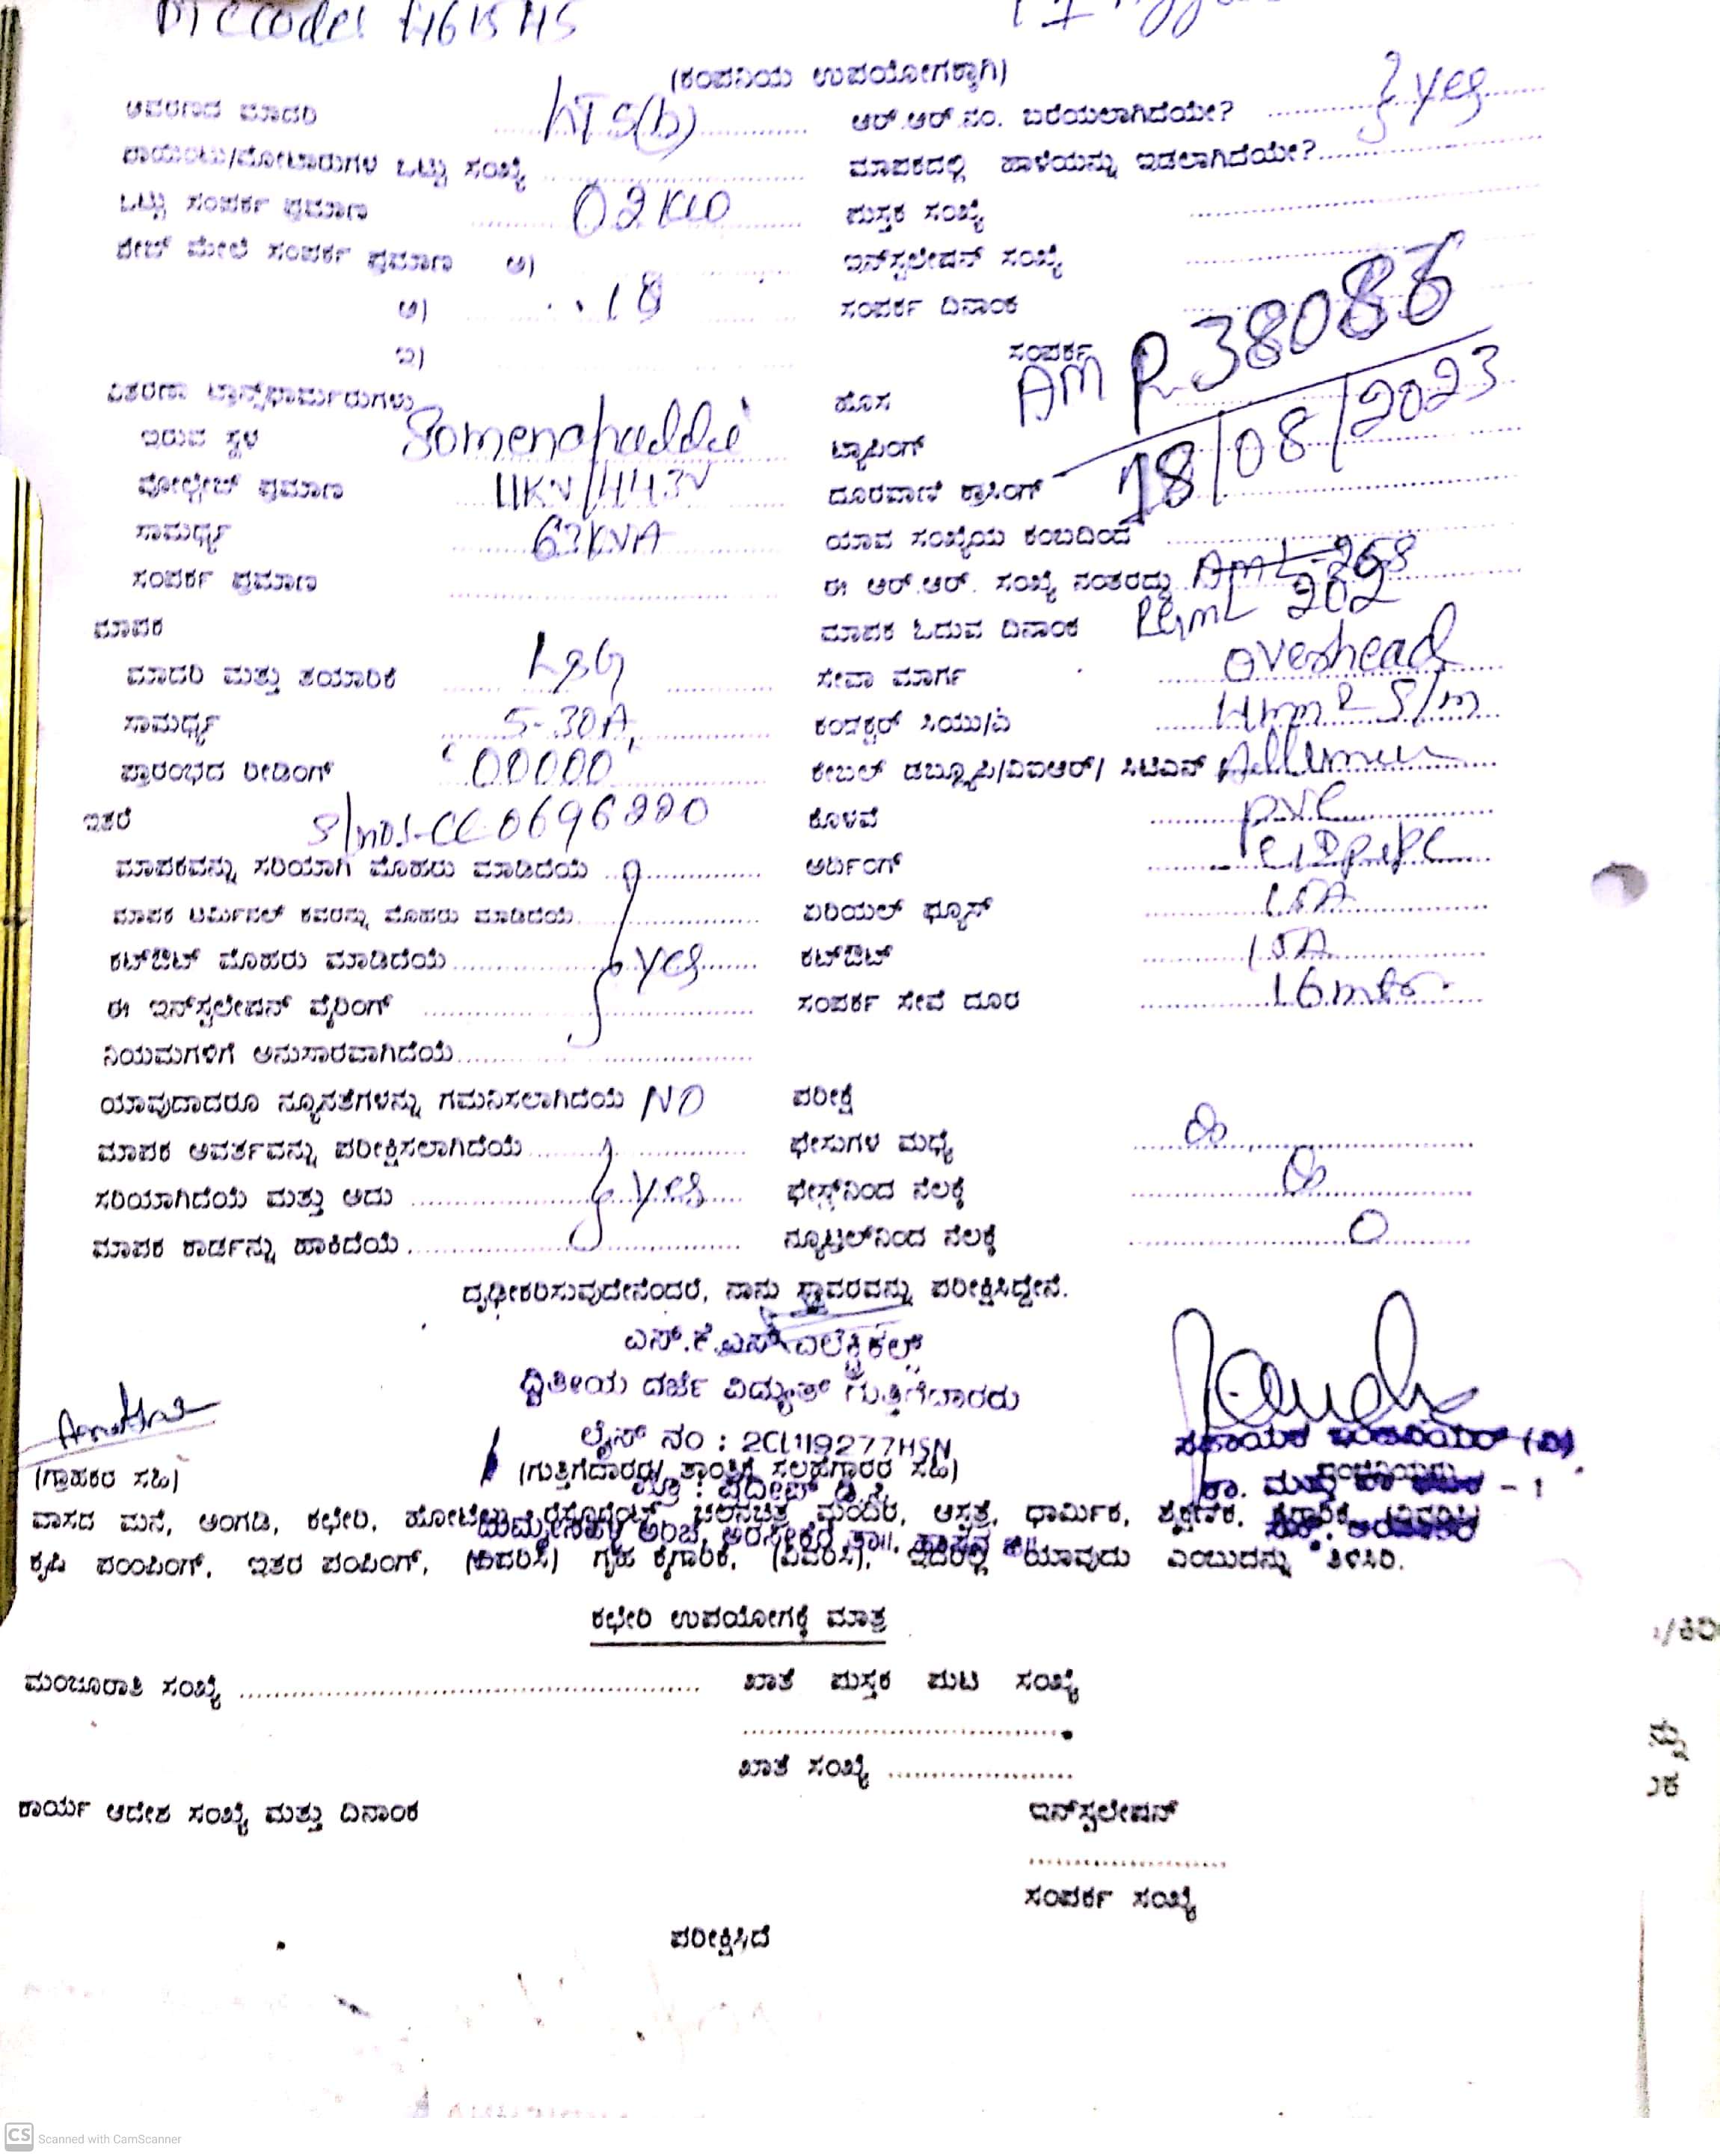 (ಕಂಪನಿಯ ಉಪಯೋಗಕ್ಕಾಗಿ)
ಆವರಣದ ಮಾದರಿ
ಆರ್.ಆರ್.ನಂ. ಬರೆಯಲಾಗಿದೆಯೇ? yes
ಪಾಯಿಂಟು/ಮೋಟಾರುಗಳ ಒಟ್ಟು ಸಂಖ್ಯೆ
ಮಾಪಕದಲ್ಲಿ ಹಾಳೆಯನ್ನು ಇಡಲಾಗಿದೆಯೇ?
ಒಟ್ಟು ಸಂಪರ್ಕ ಪ್ರಮಾಣ 02 KW
ಪುಸ್ತಕ ಸಂಖ್ಯೆ
ಪೇಜ್ ಮೇಲೆ ಸಂಪರ್ಕ ಪ್ರಮಾಣ ಅ)
ಇನ್‌ಸ್ಟಲೇಷನ್ ಸಂಖ್ಯೆ
ಆ) 18
ಸಂಪರ್ಕ ದಿನಾಂಕ
ಇ)
ಸಂಪರ್ಕ
AMP 38086
ವಿತರಣಾ ಟ್ರಾನ್ಸ್‌ಫಾರ್ಮರುಗಳು
ಹೊಸ
ಇರುವ ಸ್ಥಳ
ಟ್ಯಾಪಿಂಗ್ 18/08/2023
ವೋಲ್ಟೇಜ್ ಪ್ರಮಾಣ 11KV/443V
ದೂರವಾಣಿ ಕ್ರಾಸಿಂಗ್
ಸಾಮರ್ಥ್ಯ 63KVA
ಯಾವ ಸಂಖ್ಯೆಯ ಕಂಬದಿಂದ
ಸಂಪರ್ಕ ಪ್ರಮಾಣ
ಈ ಆರ್.ಆರ್. ಸಂಖ್ಯೆ ನಂತರದ್ದು AML-268
ಮಾಪಕ
ಮಾಪಕ ಓದುವ ದಿನಾಂಕ 282
ಮಾದರಿ ಮತ್ತು ತಯಾರಿಕೆ L&G
ಸೇವಾ ಮಾರ್ಗ overhead
ಸಾಮರ್ಥ್ಯ 5-30A
ಕಂಡಕ್ಟರ್ ಸಿಯು/ಎ
ಪ್ರಾರಂಭದ ರೀಡಿಂಗ್ '00000'
ಕೇಬಲ್ ಡಬ್ಲ್ಯೂಪಿ/ವಿಐಆರ್/ ಸಿಟಿಎಸ್
ಇತರೆ S/no:-CC0696220
ಕೊಳವೆ PVC
ಮಾಪಕವನ್ನು ಸರಿಯಾಗಿ ಮೊಹರು ಮಾಡಿದೆಯೆ
ಅರ್ಥಿಂಗ್
ಮಾಪಕ ಟರ್ಮಿನಲ್ ಕವರನ್ನು ಮೊಹರು ಮಾಡಿದೆಯೆ
ಏರಿಯಲ್ ಫ್ಯೂಸ್ 15A
ಕಟ್‌ಔಟ್ ಮೊಹರು ಮಾಡಿದೆಯೆ yes
ಕಟ್‌ಔಟ್ 15A
ಈ ಇನ್‌ಸ್ಟಲೇಷನ್ ವೈರಿಂಗ್
ಸಂಪರ್ಕ ಸೇವೆ ದೂರ 16 mtr.
ನಿಯಮಗಳಿಗೆ ಅನುಸಾರವಾಗಿದೆಯೆ
ಯಾವುದಾದರೂ ನ್ಯೂನತೆಗಳನ್ನು ಗಮನಿಸಲಾಗಿದೆಯೆ NO
ಪರೀಕ್ಷೆ
ಮಾಪಕ ಆವರ್ತವನ್ನು ಪರೀಕ್ಷಿಸಲಾಗಿದೆಯೆ
ಫೇಸುಗಳ ಮಧ್ಯೆ ∞
ಸರಿಯಾಗಿದೆಯೆ ಮತ್ತು ಅದು yes
ಫೇಸ್ನಿಂದ ನೆಲಕ್ಕೆ ∞
ಮಾಪಕ ಕಾರ್ಡನ್ನು ಹಾಕಿದೆಯೆ
ನ್ಯೂಟ್ರಲ್‌ನಿಂದ ನೆಲಕ್ಕೆ 0
ದೃಢೀಕರಿಸುವುದೇನೆಂದರೆ, ನಾನು ಸ್ಥಾವರವನ್ನು ಪರೀಕ್ಷಿಸಿದ್ದೇನೆ.
ಎಸ್.ಕೆ.ಎಸ್ ಎಲೆಕ್ಟ್ರಿಕಲ್ಸ್
ದ್ವಿತೀಯ ದರ್ಜೆ ವಿದ್ಯುತ್ ಗುತ್ತಿಗೆದಾರರು
ಲೈಸ್ ನಂ : 2CL119277HSN
ಸಹಾಯಕ ಇಂಜಿನಿಯರ್ (ವಿ)
(ಗ್ರಾಹಕರ ಸಹಿ)
(ಗುತ್ತಿಗೆದಾರರ/ ತಾಂತ್ರಿಕ ಸಲಹೆಗಾರರ ಸಹಿ)
ವಾಸದ ಮನೆ, ಅಂಗಡಿ, ಕಛೇರಿ, ಹೋಟೆಲು, ರೆಸ್ಟೂರೆಂಟ್, ಚಲನಚಿತ್ರ ಮಂದಿರ, ಆಸ್ಪತ್ರೆ, ಧಾರ್ಮಿಕ, ಶೈಕ್ಷಣಿಕ, ಕೈಗಾರಿಕೆ, (ವಿವರಿಸಿ)
ಕೃಷಿ ಪಂಪಿಂಗ್, ಇತರ ಪಂಪಿಂಗ್, (ವಿವರಿಸಿ) ಗೃಹ ಕೈಗಾರಿಕೆ, (ವಿವರಿಸಿ), ಇದರಲ್ಲಿ ಯಾವುದು ಎಂಬುದನ್ನು ತಿಳಿಸಿರಿ.
ಕಛೇರಿ ಉಪಯೋಗಕ್ಕೆ ಮಾತ್ರ
ಮಂಜೂರಾತಿ ಸಂಖ್ಯೆ
ಖಾತೆ ಪುಸ್ತಕ ಪುಟ ಸಂಖ್ಯೆ
ಖಾತೆ ಸಂಖ್ಯೆ
ಕಾರ್ಯ ಆದೇಶ ಸಂಖ್ಯೆ ಮತ್ತು ದಿನಾಂಕ
ಇನ್‌ಸ್ಟಲೇಷನ್
ಸಂಪರ್ಕ ಸಂಖ್ಯೆ
ಪರೀಕ್ಷಿಸಿದೆ
CS Scanned with CamScanner